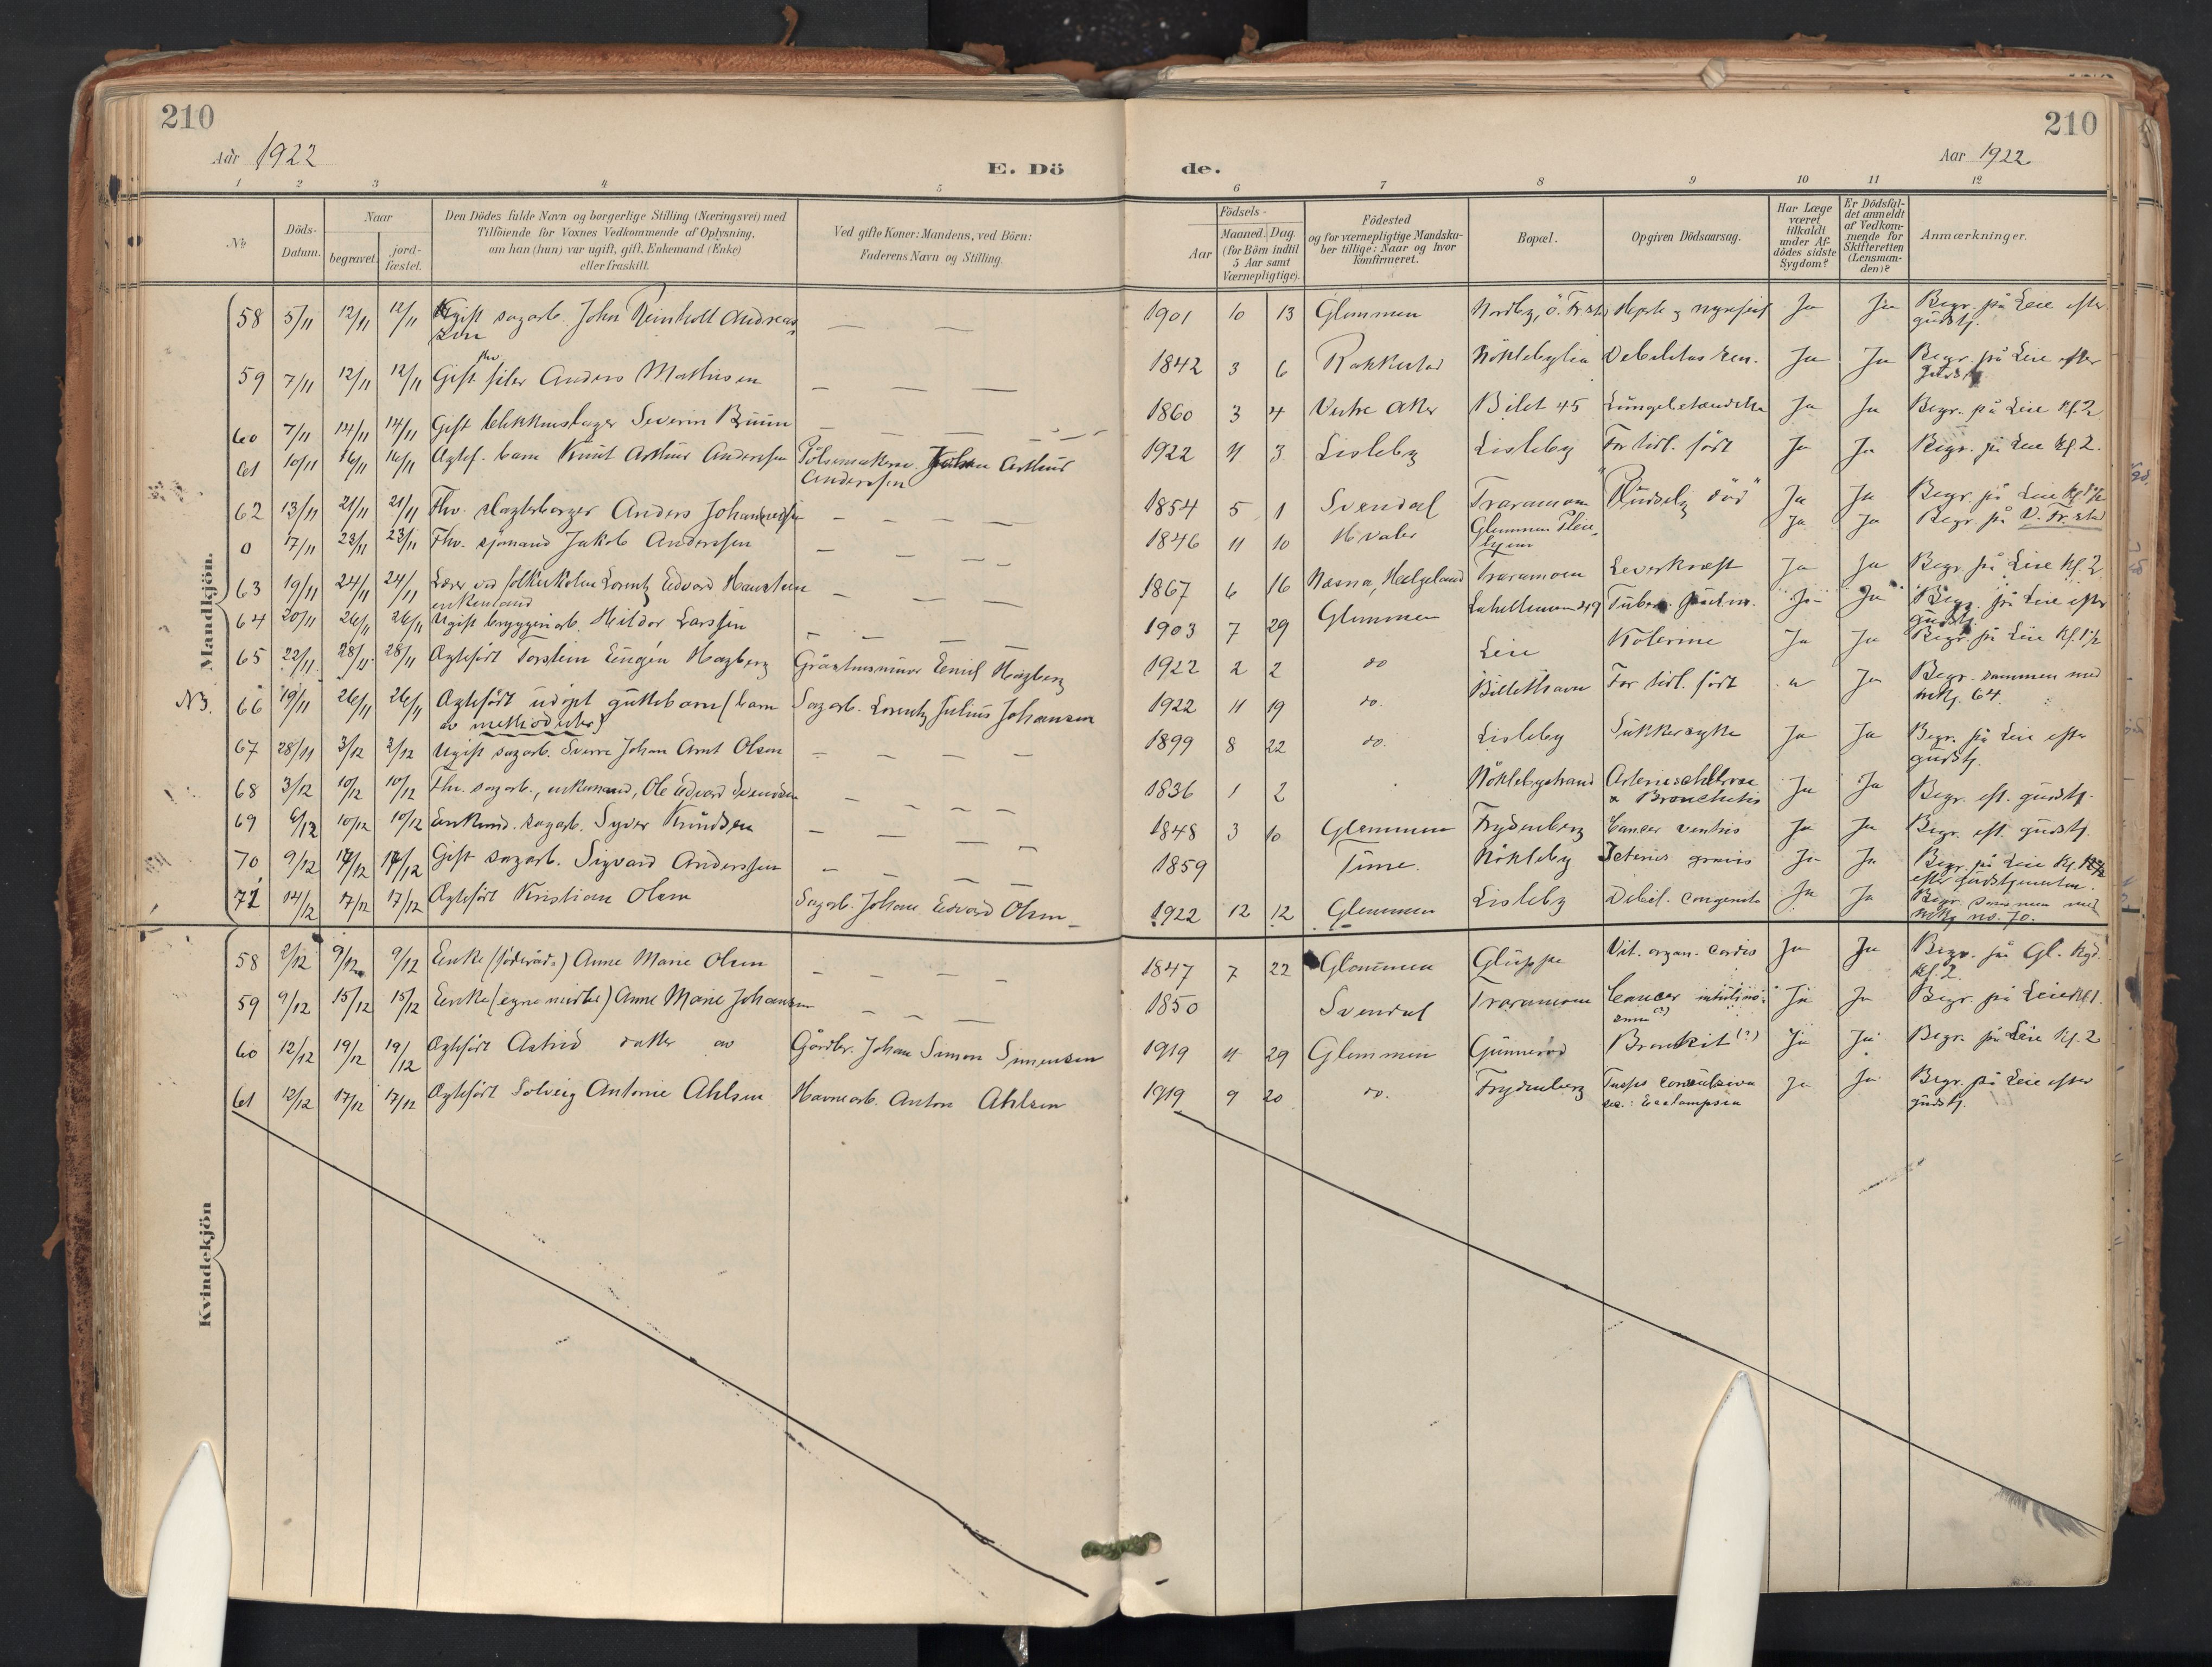 210
Aar 1922
E. Dö
de.
Aar 1922
210
1 2 3 4 5 6 7 8 9 10 11 12
No
Döds-Datum.
Naar
begravet.
jord-fæstet.
Den Dödes fulde Navn og borgerlige Stilling (Næringsvei) med
Tilföiende for Voxnes Vedkommende af Oplysning,
om han (hun) var ugift, gift, Enkemand (Enke)
eller fraskilt.
Ved gifte Koner: Mandens, ved Börn:
Faderens Navn og Stilling.
Födsels-
Aar
Maaned. Dag.
(for Börn indtil
5 Aar samt
Værnepligtige).
Födested
og for værnepligtige Mandska-
ber tillige: Naar og hvor
Konfirmeret.
Bopæl.
Opgiven Dödsaarsag.
Har Læge
været
tilkaldt
under Af-
dödes sidste
Sygdom?
Er Dödsfal-
det anmeldt
af Vedkom-
mende for
Skifteretten
(Lensman-
den)?
Anmærkninger.
Mandkjön.
58 5/11 12/11 12/11 Ugift sagarb. John Reinholt Andreas-
sen — — 1901 10 13 Glemmen Nordby, Ö. Fr.stad Hjerte og nyrefeil Ja Ja Begr. på Leie efter
gudstj.
59 7/11 12/11 12/11 Gift fhv. filer Anders Mathisen — — — 1842 3 6 Rakkestad Nöklebylia Debilitas sen. Ja Ja Begr. på Leie efter
gudstj.
60 7/11 14/11 14/11 Gift blikkenslager Severin Bruun — — — 1860 3 4 Vestre Aker Bilet 45 Lungebetændelse Ja Ja Begr. på Leie kl. 2
61 10/11 16/11 16/11 Ægtef. barn Knut Arthur Anderssen Pölsemaker Johan Arthur
Anderssen 1922 11 3 Lisleby Lisleby For tidl. född Ja Ja Begr. på Leie kl. 2.
62 13/11 21/11 21/11 Fhv. slagterborger Anders Johannessen — — — — 1854 5 1 Svendal Traramoen "Pludselig död" Ja Ja Begr. på Leie kl. 1½
0 17/11 23/11 23/11 Fhv. sjömand Jakob Anderssen — — — 1846 11 10 Hvaler Glemmen Pleie-
hjem Ja Ja Begr. på V. Fr.stad
63 19/11 24/11 24/11 Lærer ved folkeskolen Lorentz Edvard Haustein
enkemand — — — — 1867 6 16 Næsna, Helgeland Traramoen Leverkræft Ja Ja Begr. på Leie kl. 2
64 20/11 26/11 26/11 Ugift bryggeriarb. Hildor Larssen — — — 1903 7 29 Glemmen 49 Ja Ja Begr. på Leie efter
gudstj.
65 22/11 28/11 28/11 Ægtefödt Torstein Eugén Hagberg Emil Hagberg 1922 2 2 do Leie Kolerine Ja Ja Begr. på Leie kl. 1½
NB. 66 19/11 26/11 26/11 Ægtefödt udöpt guttebarn (barn
av methodister) Sagarb. Lorentz Julius Johansen 1922 11 19 do. For tidl. född Ja Begr. sammen med
mkj. 64
67 28/11 3/12 3/12 Ugift sagarb. Sverre Johan Arnt Olsen — — — — 1899 8 22 do. Lisleby Sukkersyke Ja Ja Begr. på Leie efter
gudstj.
68 3/12 10/12 10/12 Fhv. sagarb., enkemand, Ole Edvard Svendsen — — — — 1836 1 2 Nöklebystrand Arteriosclerose
& Bronchitis Ja Ja Begr. eft. gudstj.
69 6/12 10/12 10/12 Enkemd. sagarb. Syver Knudsen — — — — 1848 3 10 Glemmen Frydenberg Cancer ventris Ja Ja Begr. eft. gudstj.
70 9/12 17/12 17/12 Gift sagarb. Sigvard Anderssen — — — — 1859 Tune. Nökleby Icterus gravis Ja Ja Begr. på Leie
efter gudstjenesten.
71 14/12 17/12 17/12 Ægtefödt Kristian Olsen Sagarb. Johan Edvard Olsen 1922 12 12 Glemmen Lisleby Debil. congenita Ja Ja Begr. sammen med
mkj no. 70.
Kvindekjön
58 2/12 9/12 9/12 Enke (föderåd.) Anne Marie Olsen — — — — 1847 7 22 Glemmen Glüppe Vit. organ. cordis Ja Ja Begr. på Gl. kgd.
kl. 2.
59 9/12 15/12 15/12 Enke (egne midler) Anne Marie Johansen — — — 1850 Svendal Traramoen Cancer Ja Ja Begr. på Leie kl 1.
60 12/12 19/12 19/12 Ægtefödt Astrid datter av Gårdbr. Johan Simon Simensen 1919 11 29 Glemmen Gunneröd Bronkit (?) Ja Ja Begr. på Leie kl. 2
61 12/12 17/12 17/12 Ægtefödt Solveig Antonie Ahlsen Havnearb. Anton Ahlsen 1919 9 20 do. Frydenberg Tussis convulsiva
Eclampsia Ja Ja Begr. på Leie efter
gudstj.